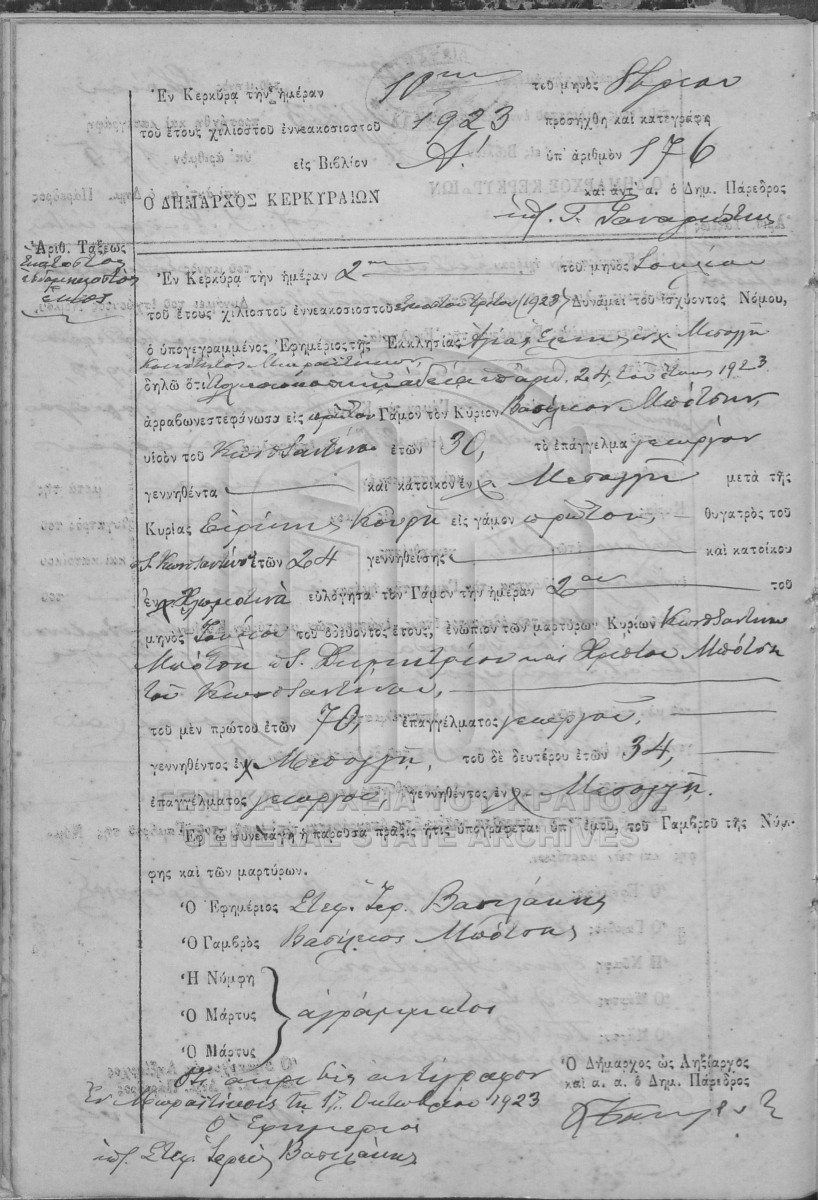 Ἐν Κερκύρᾳ τὴν ἡμέραν 10ην τοῦ μηνὸς 8βρίου
τοῦ ἔτους χιλιοστοῦ ἐννεακοσιοστοῦ 1923 προσήχθη καὶ κατεγράφη
εἰς Βιβλίον Α! ὑπ' ἀριθμὸν 176
Ο ΔΗΜΑΡΧΟΣ ΚΕΡΚΥΡΑΙΩΝ καὶ ἀντ' α. ὁ Δημ. Πάρεδρος
ὑπ. Γ.
Ἀριθ. Τάξεως
Ἑκατοστὸς
ἑβδομηκοστὸς
ἕκτος.
Ἐν Κερκύρᾳ τὴν ἡμέραν 2αν τοῦ μηνὸς Ἰουλίου
τοῦ ἔτους χιλιοστοῦ ἐννεακοσιοστοῦ εἰκοστοῦ τρίτου (1923) Δυνάμει τοῦ ἰσχύοντος Νόμου,
ὁ ὑπογεγραμμένος Ἐφημέριος τῆς Ἐκκλησίας Ἁγίας χ. Μεσογγῆ
Κοινότητος Μωραϊτίκων,
δηλῶ ὅτι 24 τοῦ ἔτους 1923
ἀρραβωνεστεφάνωσα εἰς πρῶτον Γάμον τὸν Κύριον Βασίλειον Μπότσην,
υἱὸν τοῦ Κωνσταντίνου ἐτῶν 30, τὸ ἐπάγγελμα γεωργὸν
γεννηθέντα καὶ κάτοικον ἐν χ. Μεσογγῆ μετὰ τῆς
Κυρίας Εἰρήνης Κουρῆ εἰς γάμον πρῶτον, θυγατρὸς τοῦ
Κωνσταντίνου ἐτῶν 24 γεννηθείσης καὶ κατοίκου
ἐν χ. Χλωματιανὰ εὐλόγησα τὸν Γάμον τὴν ἡμέραν 2αν τοῦ
μηνὸς Ἰουλίου τοῦ ὁδεύοντος ἔτους, ἐνώπιον τῶν μαρτύρων Κυρίων Κωνσταντίνου
Μπότση Δημητρίου καὶ Χρίστου Μπότση
τοῦ Κωνσταντίνου,
τοῦ μὲν πρώτου ἐτῶν 70, ἐπαγγέλματος γεωργοῦ,
γεννηθέντος ἐν χ. Μεσογγῆ, τοῦ δὲ δευτέρου ἐτῶν 34,
ἐπαγγέλματος γεωργοῦ, γεννηθέντος ἐν χ. Μεσογγῆ.
ΓΕΝΙΚΑ ΑΡΧΕΙΑ ΤΟΥ ΚΡΑΤΟΥΣ
GENERAL STATE ARCHIVES
Ἐφ' ᾧ συνετάγη ἡ παροῦσα πρᾶξις ἥτις ὑπογράφεται ὑπ' ἐμοῦ, τοῦ Γαμβροῦ τῆς Νύμ-
φης καὶ τῶν μαρτύρων.
Ὁ Ἐφημέριος Στεφ. Ἱερ. Βασιλάκης
Ὁ Γαμβρὸς Βασίλειος Μπότσης
Ἡ Νύμφη
Ὁ Μάρτυς ἀγράμματοι
Ὁ Μάρτυς
Ὅτι ἀκριβὲς ἀντίγραφον
Ἐν Μωραϊτίκοις τῇ 17 Ὀκτωβρίου 1923
Ὁ Ἐφημέριος
ὑπ. Στεφ. Ἱερεὺς Βασιλάκης
Ὁ Δήμαρχος ὡς Ληξίαρχος
καὶ α. α. ὁ Δημ. Πάρεδρος